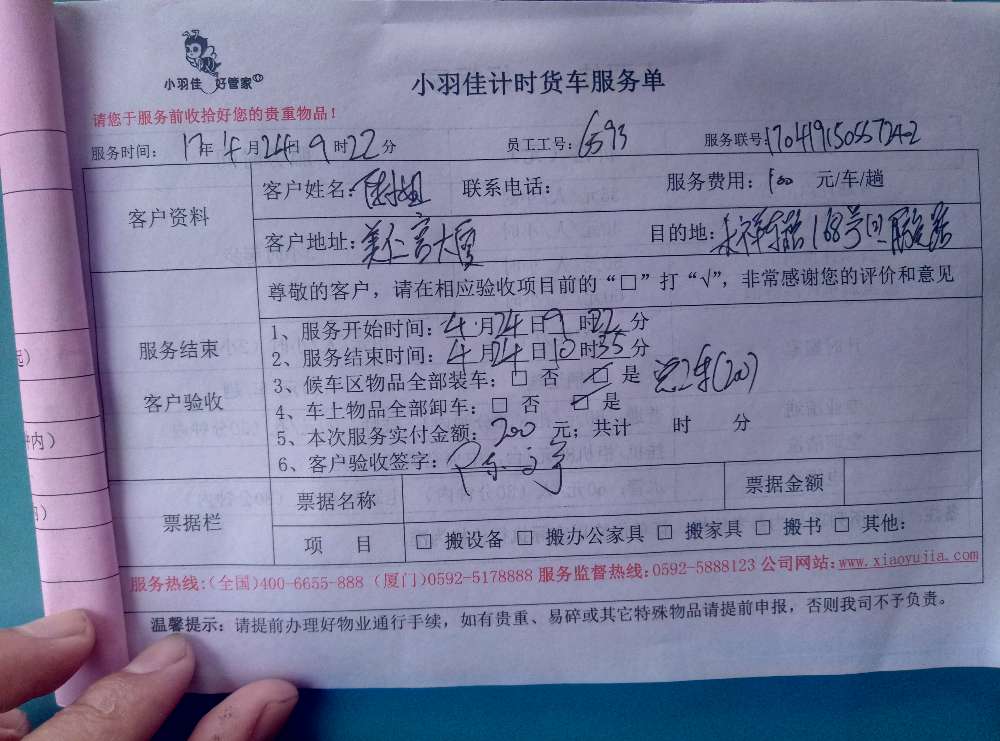 小羽佳 好管家
小羽佳计时货车服务单
请您于服务前收拾好您的贵重物品！
服务时间： 17年 4月24日 9时22分 员工工号：6593 服务联号：
客户资料
客户姓名： 联系电话： 服务费用：100 元/车/趟
客户地址：美仁宫大厦 目的地： 168号
尊敬的客户，请在相应验收项目前的“□”打“√”，非常感谢您的评价和意见
服务结束
客户验收
1、服务开始时间：4月24日9时22分
2、服务结束时间：4月24日10时35分
3、候车区物品全部装车：□ 否 □ 是 (200)
4、车上物品全部卸车：□ 否 □ 是
5、本次服务实付金额：200 元；共计 时 分
6、客户验收签字：
票据栏
票据名称 票据金额
项 目 □ 搬设备 □ 搬办公家具 □ 搬家具 □ 搬书 □ 其他：
服务热线：(全国)400-6655-888 (厦门)0592-5178888 服务监督热线：0592-5888123 公司网站：www.xiaoyujia.com
温馨提示：请提前办理好物业通行手续，如有贵重、易碎或其它特殊物品请提前申报，否则我司不予负责。